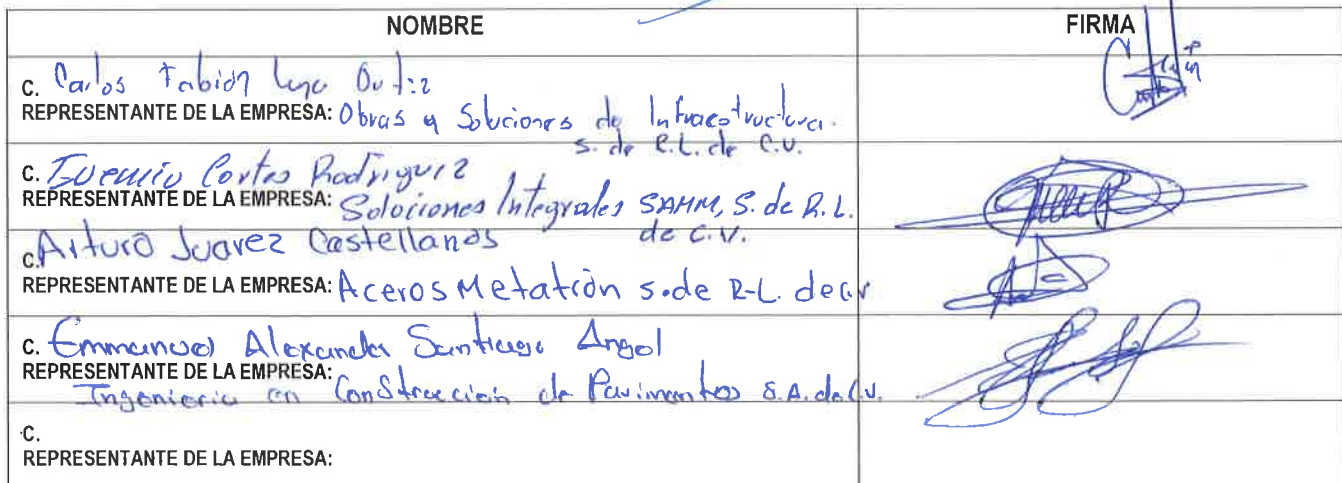 NOMBRE FIRMA
C. Carlos Fabián Lugo Ortiz
REPRESENTANTE DE LA EMPRESA: Obras y Soluciones de Infraestructura.
S. de R.L. de C.V.
C. Eugenio Cortes Rodriguez
REPRESENTANTE DE LA EMPRESA: Soluciones Integrales SAHM, S. de R.L.
de C.V.
C. Arturo Juarez Castellanos
REPRESENTANTE DE LA EMPRESA: Aceros Metatrón S. de R.L. de C.V
C. Emmanuel Alexander Santiago Angel
REPRESENTANTE DE LA EMPRESA:
Ingenieria en Construcción de Pavimentos S.A. de C.V.
C.
REPRESENTANTE DE LA EMPRESA: